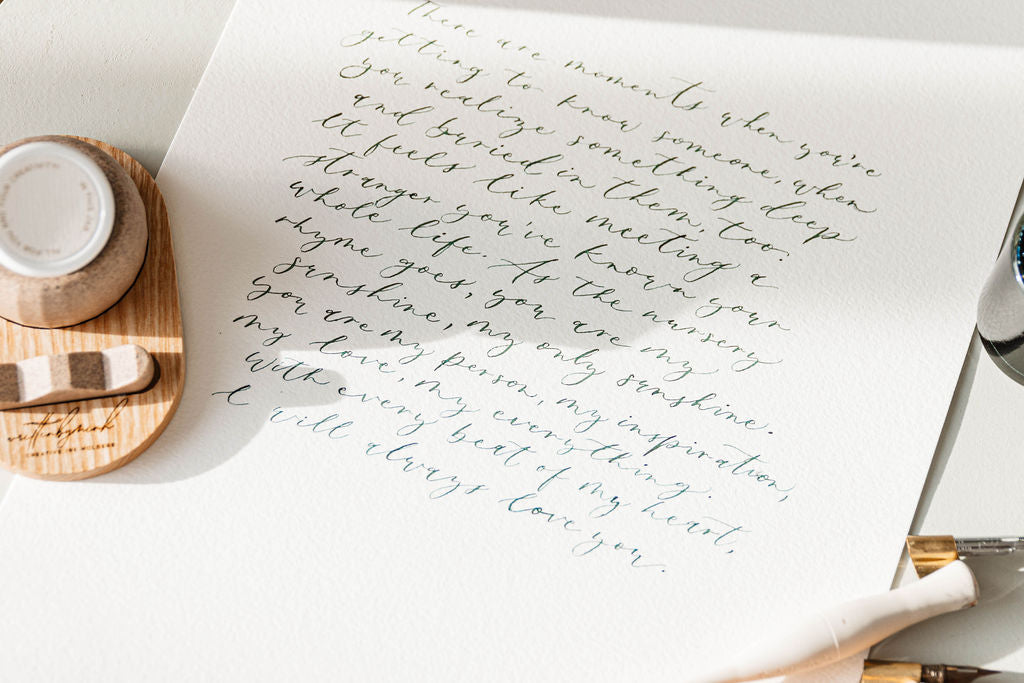 There are moments when you're
getting to know someone, when
you realize something deep
and buried in them, too.
It feels like meeting a
stranger you've known your
whole life. As the nursery
rhyme goes, you are my
sunshine, my only sunshine.
you are my person, my inspiration,
my love, my everything.
With every beat of my heart,
I will always love you.
writtenbymark
CREATIVE INK HOLDERS